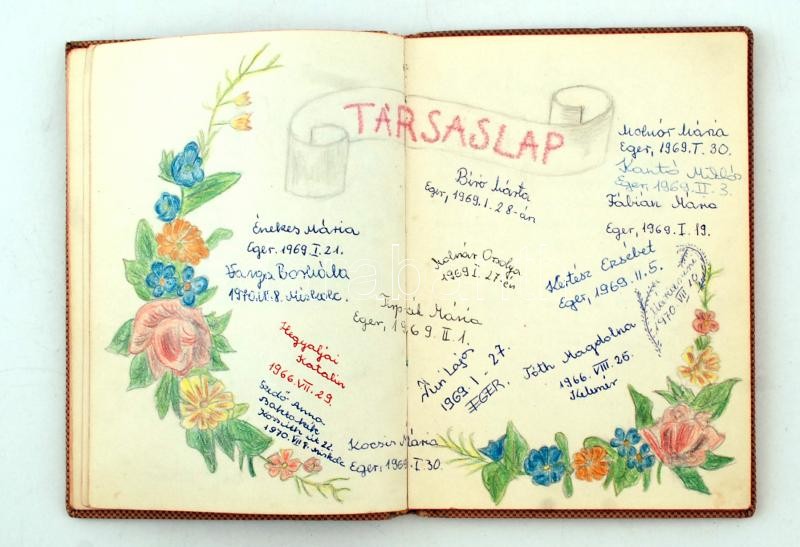 TÁRSASLAP
Énekes Mária
Eger. 1969. I. 21.
Varga Borbála
1970.
Hegyaljai
Katalin
1966. VII. 29.
Anna
Kossuth út 22.
1970. VII. 8. Miskolc
Kocsis Mária
Eger, 1969. I. 30.
Biró Márta
Eger, 1969. I. 28-án
Molnár Orsolya
1969 I. 27-én
Mária
Eger, 1969. II. 1.
Lajos
1969. I - 27.
EGER.
Molnár Mária
Eger, 1969. I. 30.
Kantó Miklós
Eger 1969. II. 3.
Fábián Mária
Eger, 1969. I. 19.
Kertész Erzsébet
Eger, 1969. II. 5.
1970. VII 10.
Tóth Magdolna
1966. VIII. 26.
Kelemér